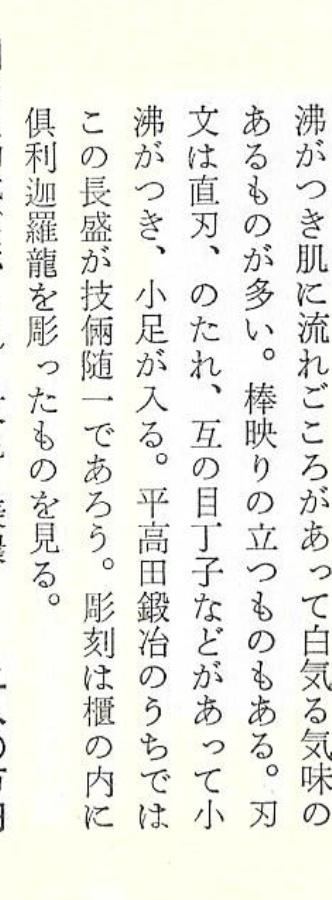 沸がつき肌に流れごころがあって白気る気味の
あるものが多い。棒映りの立つものもある。刃
文は直刃、のたれ、互の目丁子などがあって小
沸がつき、小足が入る。平高田鍛冶のうちでは
この長盛が技倆随一であろう。彫刻は櫃の内に
倶利迦羅龍を彫ったものを見る。